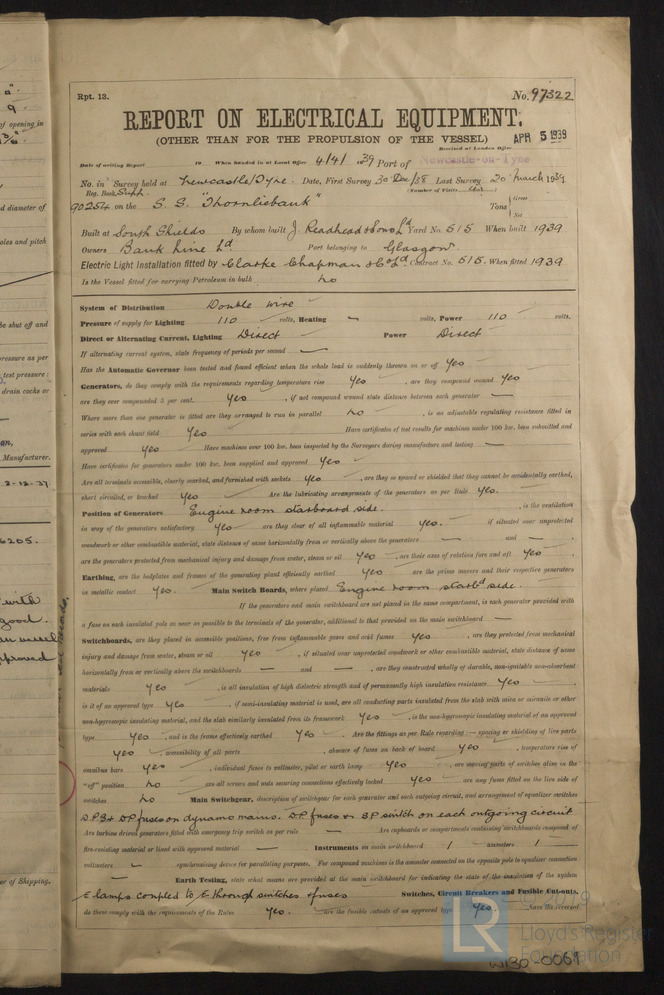 Rpt. 13.
No. 97322
REPORT ON ELECTRICAL EQUIPMENT.
(OTHER THAN FOR THE PROPULSION OF THE VESSEL)
APR 5 1939
Received at London Office
Date of writing Report 19 When handed in at Local Office 4/4/ 1939 Port of Newcastle-on-Tyne
No. in Survey held at Newcastle/Tyne. Date, First Survey 30 Dec/38 Last Survey 20 March 1939
Reg. Book. Supt. (Number of Visits
90254 on the S. S. "Thornliebank" Tons { Gross
Net
Built at South Shields By whom built J. Readhead & Sons Ld Yard No. 515 When built 1939
Owners Bank Line Ld Port belonging to Glasgow.
Electric Light Installation fitted by Clarke Chapman & Co Ld Contract No. 515. When fitted 1939
Is the Vessel fitted for carrying Petroleum in bulk No
System of Distribution Double wire
Pressure of supply for Lighting 110 volts, Heating — volts, Power 110 volts.
Direct or Alternating Current, Lighting Direct Power Direct
If alternating current system, state frequency of periods per second —
Has the Automatic Governor been tested and found efficient when the whole load is suddenly thrown on or off Yes
Generators, do they comply with the requirements regarding temperature rise Yes , are they compound wound Yes
are they over compounded 5 per cent. Yes , if not compound wound state distance between each generator —
Where more than one generator is fitted are they arranged to run in parallel No , is an adjustable regulating resistance fitted in
series with each shunt field Yes Have certificates of test results for machines under 100 kw. been submitted and
approved Yes Have machines over 100 kw. been inspected by the Surveyors during manufacture and testing —
Have certificates for generators under 100 kw. been supplied and approved Yes
Are all terminals accessible, clearly marked, and furnished with sockets Yes , are they so spaced or shielded that they cannot be accidentally earthed,
short circuited, or touched Yes Are the lubricating arrangements of the generators as per Rule Yes.
Position of Generators Engine room starboard side. , is the ventilation
in way of the generators satisfactory Yes are they clear of all inflammable material Yes. if situated near unprotected
woodwork or other combustible material, state distance of same horizontally from or vertically above the generators — and — ,
are the generators protected from mechanical injury and damage from water, steam or oil Yes , are their axes of rotation fore and aft Yes
Earthing, are the bedplates and frames of the generating plant efficiently earthed Yes are the prime movers and their respective generators
in metallic contact Yes. Main Switch Boards, where placed Engine room starbd side.
If the generators and main switchboard are not placed in the same compartment, is each generator provided with
a fuse on each insulated pole as near as possible to the terminals of the generator, additional to that provided on the main switchboard —
Switchboards, are they placed in accessible positions, free from inflammable gases and acid fumes Yes , are they protected from mechanical
injury and damage from water, steam or oil Yes , if situated near unprotected woodwork or other combustible material, state distance of same
horizontally from or vertically above the switchboards — and — , are they constructed wholly of durable, non-ignitable non-absorbent
materials Yes , is all insulation of high dielectric strength and of permanently high insulation resistance Yes
is it of an approved type Yes , if semi-insulating material is used, are all conducting parts insulated from the slab with mica or micanite or other
non-hygroscopic insulating material, and the slab similarly insulated from its framework Yes , is the non-hygroscopic insulating material of an approved
type Yes , and is the frame effectively earthed Yes . Are the fittings as per Rule regarding:— spacing or shielding of live parts
Yes , accessibility of all parts , absence of fuses on back of board Yes , temperature rise of
omnibus bars Yes , individual fuses to voltmeter, pilot or earth lamp Yes , are moving parts of switches alive in the
"off" position No are all screws and nuts securing connections effectively locked Yes are any fuses fitted on the live side of
switches No Main Switchgear, description of switchgear for each generator and each outgoing circuit, and arrangement of equalizer switches
D.P. S & D.P. fuses on dynamo mains. D.P. fuses & SP switch on each outgoing circuit
Are turbine driven generators fitted with emergency trip switch as per rule — Are cupboards or compartments containing switchboards composed of
fire-resisting material or lined with approved material — Instruments on main switchboard 1 ammeters 1
voltmeters — synchronising device for paralleling purposes. For compound machines is the ammeter connected on the opposite pole to equaliser connection
— Earth Testing, state what means are provided at the main switchboard for indicating the state of the insulation of the system
E lamps coupled to E through switches & fuses Switches, Circuit Breakers and Fusible Cut-outs,
do these comply with the requirements of the Rules Yes. are the fusible cutouts of an approved type Yes.
W130-0069
© 2019
LR
Lloyd's Register
Foundation
of opening in
d diameter of
oles and pitch
Be shut off and
pressure as per
test pressure:
drain cocks or
Manufacturer.
2-12-37
6205.
with
good.
an vessel
approved
er of Shipping.